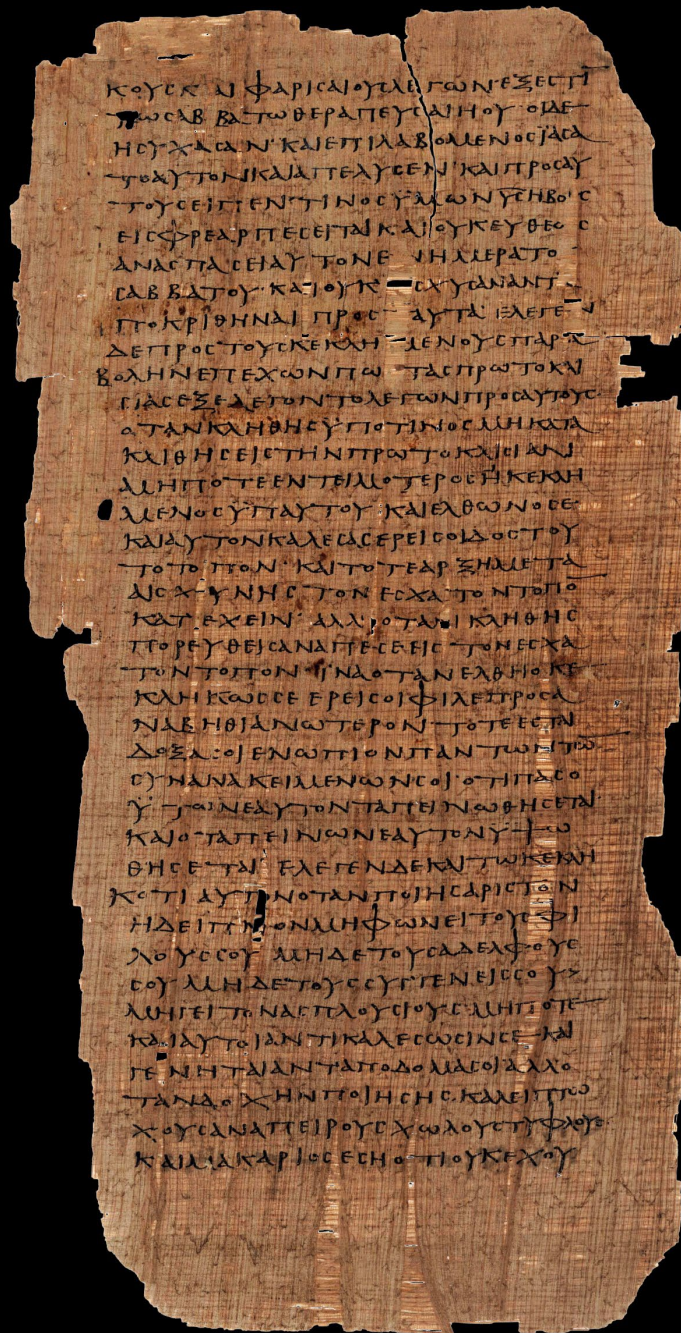 ΚΟΥΣ ΚΑΙ ΦΑΡΙΣΑΙΟΥΣ ΛΕΓΩΝ ΕΞΕΣΤΙ
ΤΩ ΣΑΒΒΑΤΩ ΘΕΡΑΠΕΥΣΑΙ Η ΟΥ ΟΙ ΔΕ
ΗΣΥΧΑΣΑΝ ΚΑΙ ΕΠΙΛΑΒΟΜΕΝΟΣ ΙΑΣΑ
ΤΟ ΑΥΤΟΝ ΚΑΙ ΑΠΕΛΥΣΕΝ ΚΑΙ ΠΡΟΣ ΑΥ
ΤΟΥΣ ΕΙΠΕΝ ΤΙΝΟΣ ΥΜΩΝ ΥΣ Η ΒΟΥΣ
ΕΙΣ ΦΡΕΑΡ ΠΕΣΕΙΤΑΙ ΚΑΙ ΟΥΚ ΕΥΘΕΩΣ
ΑΝΑΣΠΑΣΕΙ ΑΥΤΟΝ ΕΝ ΗΜΕΡΑ ΤΟ
ΣΑΒΒΑΤΟΥ ΚΑΙ ΟΥΚ ΙΣΧΥΣΑΝ ΑΝΤ
ΠΟΚΡΙΘΗΝΑΙ ΠΡΟΣ ΤΑΥΤΑ ΕΛΕΓΕΝ
ΔΕ ΠΡΟΣ ΤΟΥΣ ΚΕΚΛΗΜΕΝΟΥΣ ΠΑΡΑ
ΒΟΛΗΝ ΕΠΕΧΩΝ ΠΩΣ ΤΑΣ ΠΡΩΤΟΚΛΙ
ΣΙΑΣ ΕΞΕΛΕΓΟΝΤΟ ΛΕΓΩΝ ΠΡΟΣ ΑΥΤΟΥΣ
ΟΤΑΝ ΚΛΗΘΗΣ ΥΠΟ ΤΙΝΟΣ ΜΗ ΚΑΤΑ
ΚΛΙΘΗΣ ΕΙΣ ΤΗΝ ΠΡΩΤΟΚΛΙΣΙΑΝ
ΜΗΠΟΤΕ ΕΝΤΕΙΜΟΤΕΡΟΣ Η ΚΕΚΛΗ
ΜΕΝΟΣ ΥΠ ΑΥΤΟΥ ΚΑΙ ΕΛΘΩΝ Ο ΣΕ
ΚΑΙ ΑΥΤΟΝ ΚΑΛΕΣΑΣ ΕΡΕΙ ΣΟΙ ΔΟΣ ΤΟΥ
ΤΟ ΤΟΠΟΝ ΚΑΙ ΤΟΤΕ ΑΡΞΗ ΜΕΤΑ
ΑΙΣΧΥΝΗΣ ΤΟΝ ΕΣΧΑΤΟΝ ΤΟΠΟ
ΚΑΤΕΧΕΙΝ ΑΛΛ ΟΤΑΝ ΚΛΗΘΗΣ
ΠΟΡΕΥΘΕΙΣ ΑΝΑΠΕΣΕ ΕΙΣ ΤΟΝ ΕΣΧΑ
ΤΟΝ ΤΟΠΟΝ ΙΝΑ ΟΤΑΝ ΕΛΘΗ Ο ΚΕ
ΚΛΗΚΩΣ ΣΕ ΕΡΕΙ ΣΟΙ ΦΙΛΕ ΠΡΟΣΑ
ΝΑΒΗΘΙ ΑΝΩΤΕΡΟΝ ΤΟΤΕ ΕΣΤΑΙ
ΔΟΞΑ ΣΟΙ ΕΝΩΠΙΟΝ ΠΑΝΤΩΝ ΤΩ
ΣΥΝΑΝΑΚΕΙΜΕΝΩΝ ΣΟΙ ΟΤΙ ΠΑΣ Ο
ΥΨΩΝ ΕΑΥΤΟΝ ΤΑΠΕΙΝΩΘΗΣΕΤΑΙ
ΚΑΙ Ο ΤΑΠΕΙΝΩΝ ΕΑΥΤΟΝ ΥΨΩ
ΘΗΣΕΤΑΙ ΕΛΕΓΕΝ ΔΕ ΚΑΙ ΤΩ ΚΕΚΛΗ
ΚΟΤΙ ΑΥΤΟΝ ΟΤΑΝ ΠΟΙΗΣ ΑΡΙΣΤΟΝ
Η ΔΕΙΠΝΟΝ ΜΗ ΦΩΝΕΙ ΤΟΥΣ ΦΙ
ΛΟΥΣ ΣΟΥ ΜΗΔΕ ΤΟΥΣ ΑΔΕΛΦΟΥΣ
ΣΟΥ ΜΗΔΕ ΤΟΥΣ ΣΥΓΓΕΝΕΙΣ ΣΟΥ
ΜΗ ΓΕΙΤΟΝΑΣ ΠΛΟΥΣΙΟΥΣ ΜΗΠΟΤΕ
ΚΑΙ ΑΥΤΟΙ ΑΝΤΙΚΑΛΕΣΩΣΙΝ ΣΕ ΚΑΙ
ΓΕΝΗΤΑΙ ΑΝΤΑΠΟΔΟΜΑ ΣΟΙ ΑΛΛ Ο
ΤΑΝ ΔΟΧΗΝ ΠΟΙΗΣΗΣ ΚΑΛΕΙ ΠΤΩ
ΧΟΥΣ ΑΝΑΠΕΙΡΟΥΣ ΧΩΛΟΥΣ ΤΥΦΛΟΥΣ
ΚΑΙ ΜΑΚΑΡΙΟΣ ΕΣΗ ΟΤΙ ΟΥΚ ΕΧΟΥ